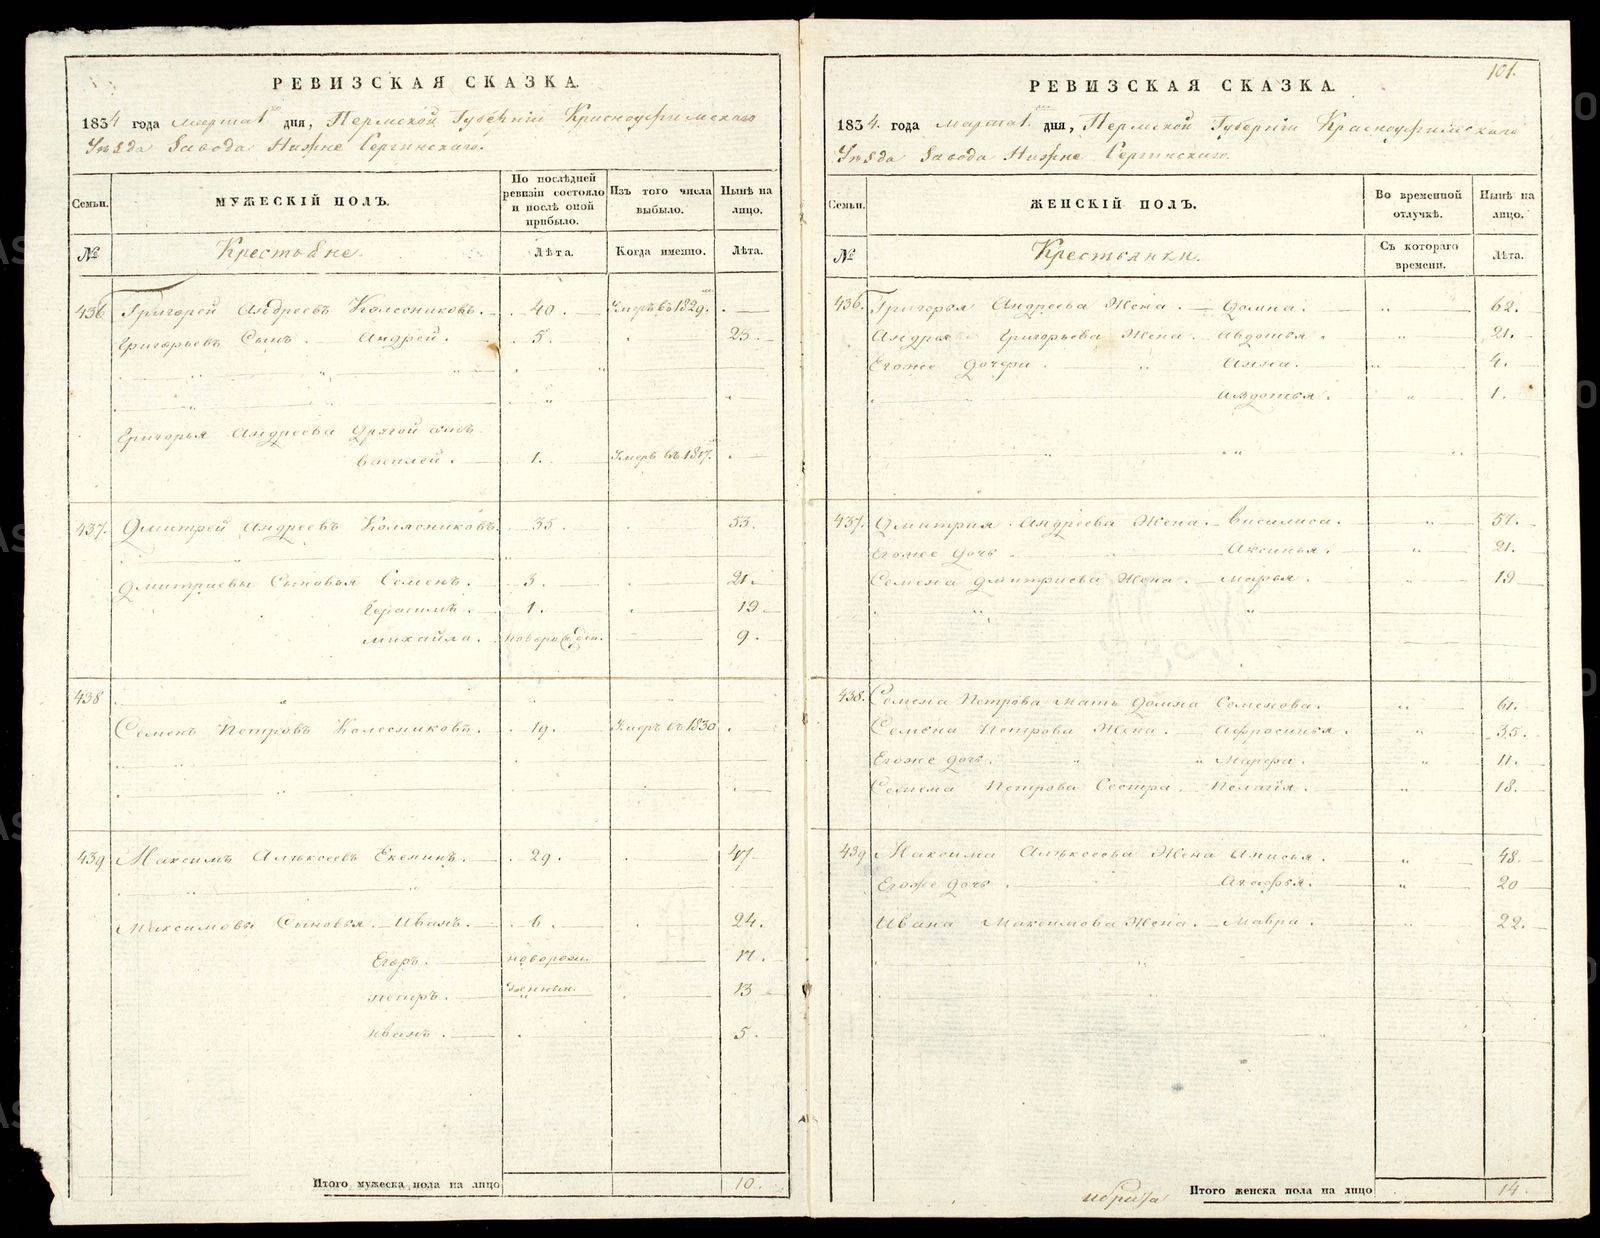 РЕВИЗСКАЯ СКАЗКА.
1834 года марта 1 дня, Пермской Губерніи Красноуфимскаго
Уѣзда Завода Нижне Сергинскаго.
Семьи.
МУЖЕСКІЙ ПОЛЪ.
По послѣдней ревизіи состояло и послѣ оной прибыло.
Изъ того числа выбыло.
Нынѣ на лицо.
№
Крестьяне.
Лѣта.
Когда именно.
Лѣта.
436 Григорей Андреевъ Колесниковъ. 40. Умеръ въ 1829.
Григорьевъ Сынъ Андрей. 5. 23.
Григорья Андреева Другой сынъ
Василей. 1. Умеръ въ 1817.
437. Дмитрей Андреевъ Колясниковъ. 35. 53.
Дмитриевы Сыновья Семенъ. 3. 21.
Герасимъ. 1. 19
Михайла. новорожден. 9.
438
Семенъ Петровъ Колесниковъ. 19. Умеръ въ 1830
439 Максимъ Алексеевъ Екенинъ. 29. 47
Максимовы Сыновья. Иванъ. 6. 24.
Егоръ. новорож. 17.
петръ. денныи. 13
иванъ. 5.
Итого мужеска пола на лицо 10.
101.
РЕВИЗСКАЯ СКАЗКА.
1834. года марта 1. дня, Пермской Губерніи Красноуфимскаго
Уѣзда Завода Нижне Сергинскаго.
Семьи.
ЖЕНСКІЙ ПОЛЪ.
Во временной отлучкѣ.
Нынѣ на лицо.
№
Крестьянки.
Съ котораго времени.
Лѣта.
436. Григорья Андреева Жена. Домна. 62.
Андрея Григорьева Жена. Авдотья. 21.
Егоже Дочери Анна. 4.
Авдотья. 1.
437. Дмитрия Андреева Жена. Василиса. 51.
Егоже Дочь Аксинья. 21.
Семена Дмитриева Жена. Марья. 19
438. Семена Петрова мать Домна Семенова. 61.
Семена Петрова Жена. Афросинья. 35.
Егоже Дочь. Марфа. 11.
Семена Петрова Сестра. Пелагія. 18.
439 Максима Алексеева Жена Анисья. 48.
Егоже Дочь Агафья. 20
Ивана Максимова Жена. Мавра. 22.
Итого женска пола на лицо 14.